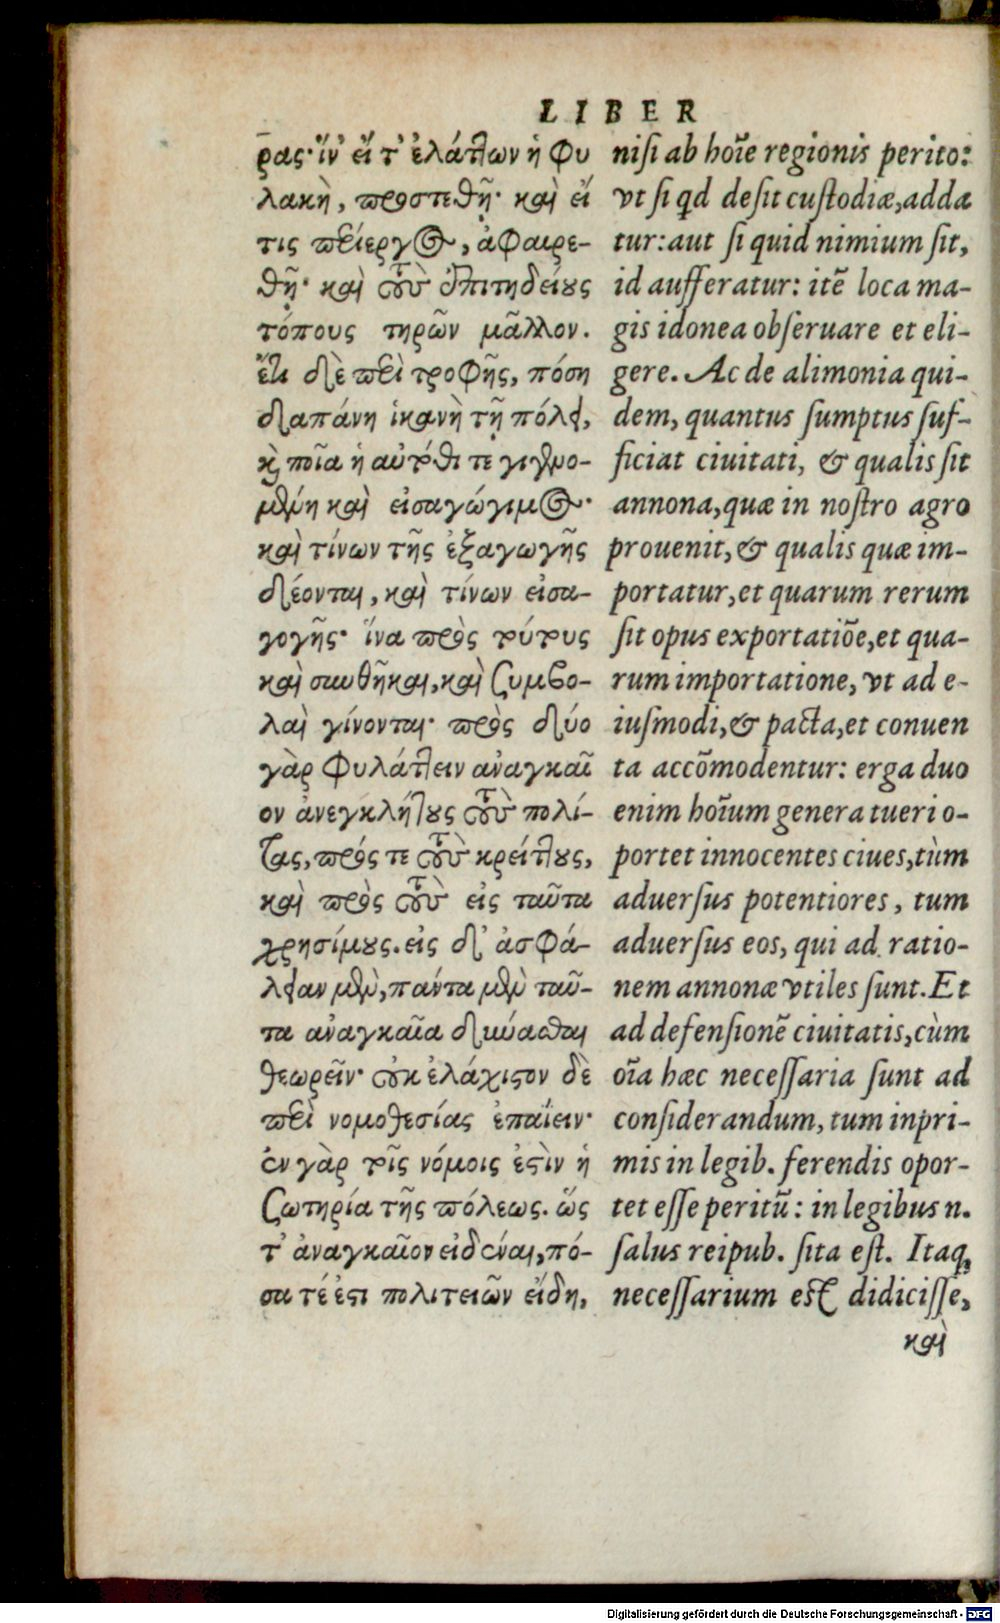 LIBER
ρας· ἵν' εἴ τ' ἐλάττων ἡ φυ
λακὴ, προστεθῇ· καὶ εἴ
τις περίεργος, ἀφαιρε-
θῇ· καὶ τοὺς ἐπιτηδείους
τόπους τηρῶν μᾶλλον.
ἔτι δὲ περὶ τροφῆς, πόση
δαπάνη ἱκανὴ τῇ πόλει,
καὶ ποῖα ἡ αὐτόθι τε γιγνο-
μένη καὶ εἰσαγώγιμος·
καὶ τίνων τῆς ἐξαγωγῆς
δέονται, καὶ τίνων εἰσα-
γογῆς· ἵνα πρὸς τούτους
καὶ συνθῆκαι, καὶ συμβο-
λαὶ γίνονται· πρὸς δύο
γὰρ φυλάττειν ἀναγκαῖ
ον ἀνεγκλήτους τοὺς πολί-
τας, πρός τε τοὺς κρείττους,
καὶ πρὸς τοὺς εἰς ταῦτα
χρησίμους. εἰς δ' ἀσφά-
λειαν μὲν, πάντα μὲν ταῦ-
τα ἀναγκαῖα δύνασθαι
θεωρεῖν· οὐκ ἐλάχιστον δὲ
περὶ νομοθεσίας ἐπαΐειν·
ἐν γὰρ τοῖς νόμοις ἐστὶν ἡ
σωτηρία τῆς πόλεως. ὥς
τ' ἀναγκαῖον εἰδέναι, πό-
σα τέ ἐστι πολιτειῶν εἴδη,
nisi ab hoīe regionis perito:
vt si qd desit custodiæ, adda
tur: aut si quid nimium sit,
id aufferatur: itē loca ma-
gis idonea obseruare et eli-
gere. Ac de alimonia qui-
dem, quantus sumptus suf-
ficiat ciuitati, & qualis sit
annona, quæ in nostro agro
prouenit, & qualis quæ im-
portatur, et quarum rerum
sit opus exportatiōe, et qua-
rum importatione, vt ad e-
iusmodi, & pacta, et conuen
ta accōmodentur: erga duo
enim hoīum genera tueri o-
portet innocentes ciues, tùm
aduersus potentiores, tum
aduersus eos, qui ad ratio-
nem annonæ vtiles sunt. Et
ad defensionē ciuitatis, cùm
oīa hæc necessaria sunt ad
considerandum, tum inpri-
mis in legib. ferendis opor-
tet esse peritū: in legibus n.
salus reipub. sita est. Itaq,
necessarium est didicisse,
καὶ
Digitalisierung gefördert durch die Deutsche Forschungsgemeinschaft - DFG